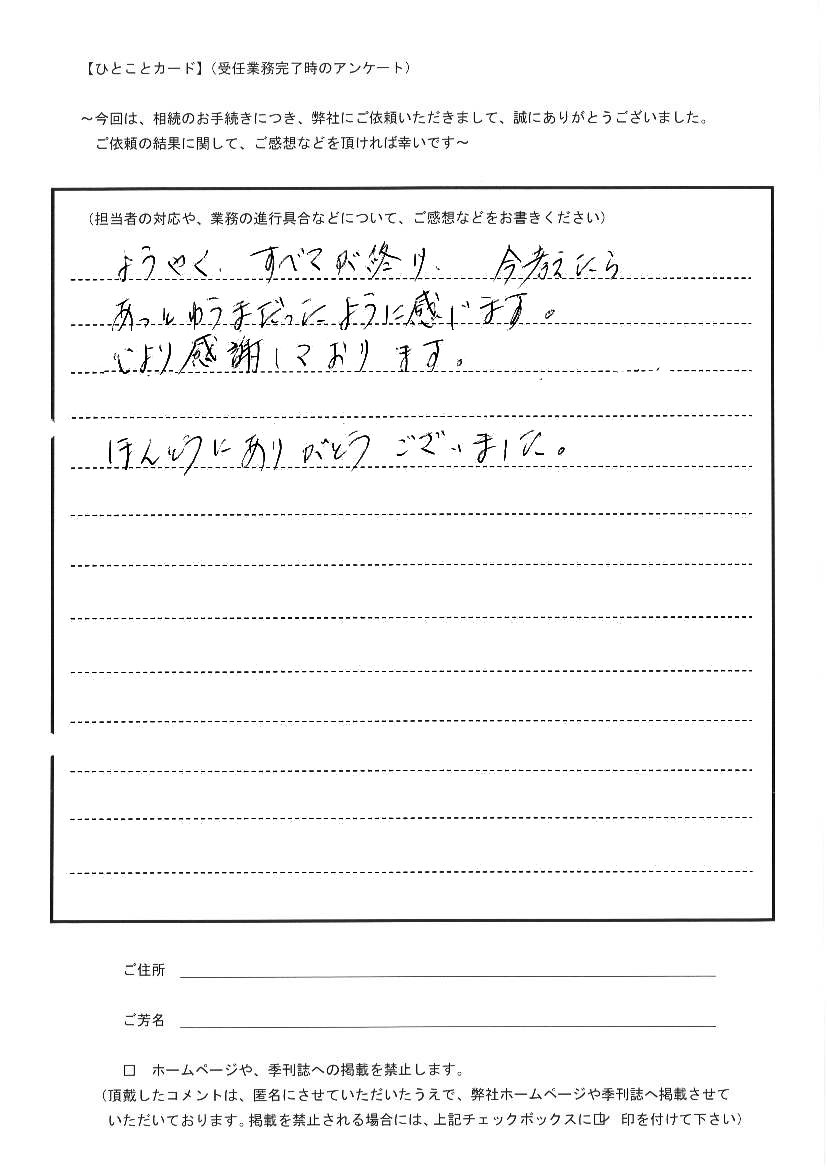 【ひとことカード】（受任業務完了時のアンケート）
～今回は、相続のお手続きにつき、弊社にご依頼いただきまして、誠にありがとうございました。
ご依頼の結果に関して、ご感想などを頂ければ幸いです～
（担当者の対応や、業務の進行具合などについて、ご感想などをお書きください）
ようやく、すべてが終り、今考えたら
あっとゆうまだったように感じます。
心より感謝しております。
ほんとうにありがとうございました。
ご住所
ご芳名
□ ホームページや、季刊誌への掲載を禁止します。
（頂戴したコメントは、匿名にさせていただいたうえで、弊社ホームページや季刊誌へ掲載させて
いただいております。掲載を禁止される場合には、上記チェックボックスに☑ 印を付けて下さい）